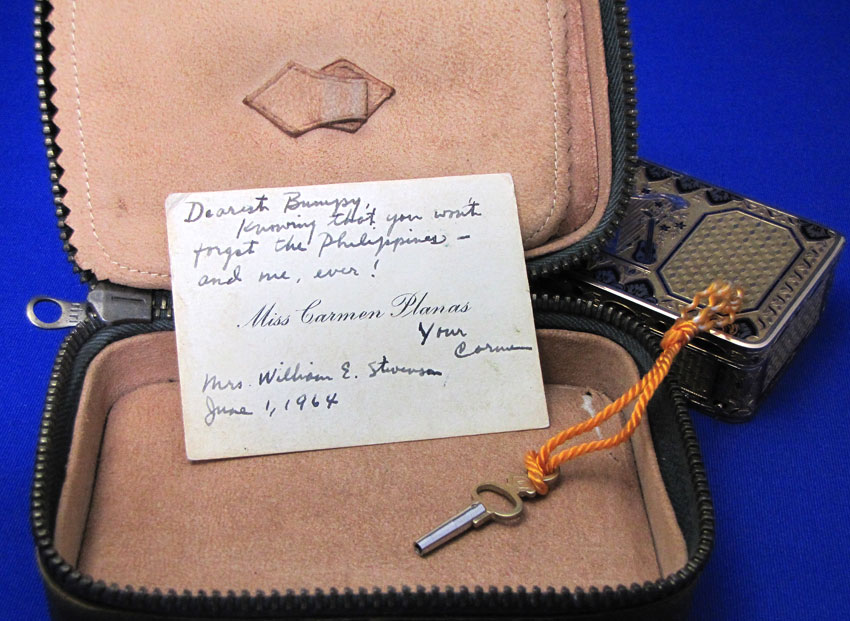 Dearest Bumpy,
Knowing that you won't
forget the Philippines –
and me, ever!
Miss Carmen Planas
Your
Carmen
Mrs. William E. Stevenson
June 1, 1964